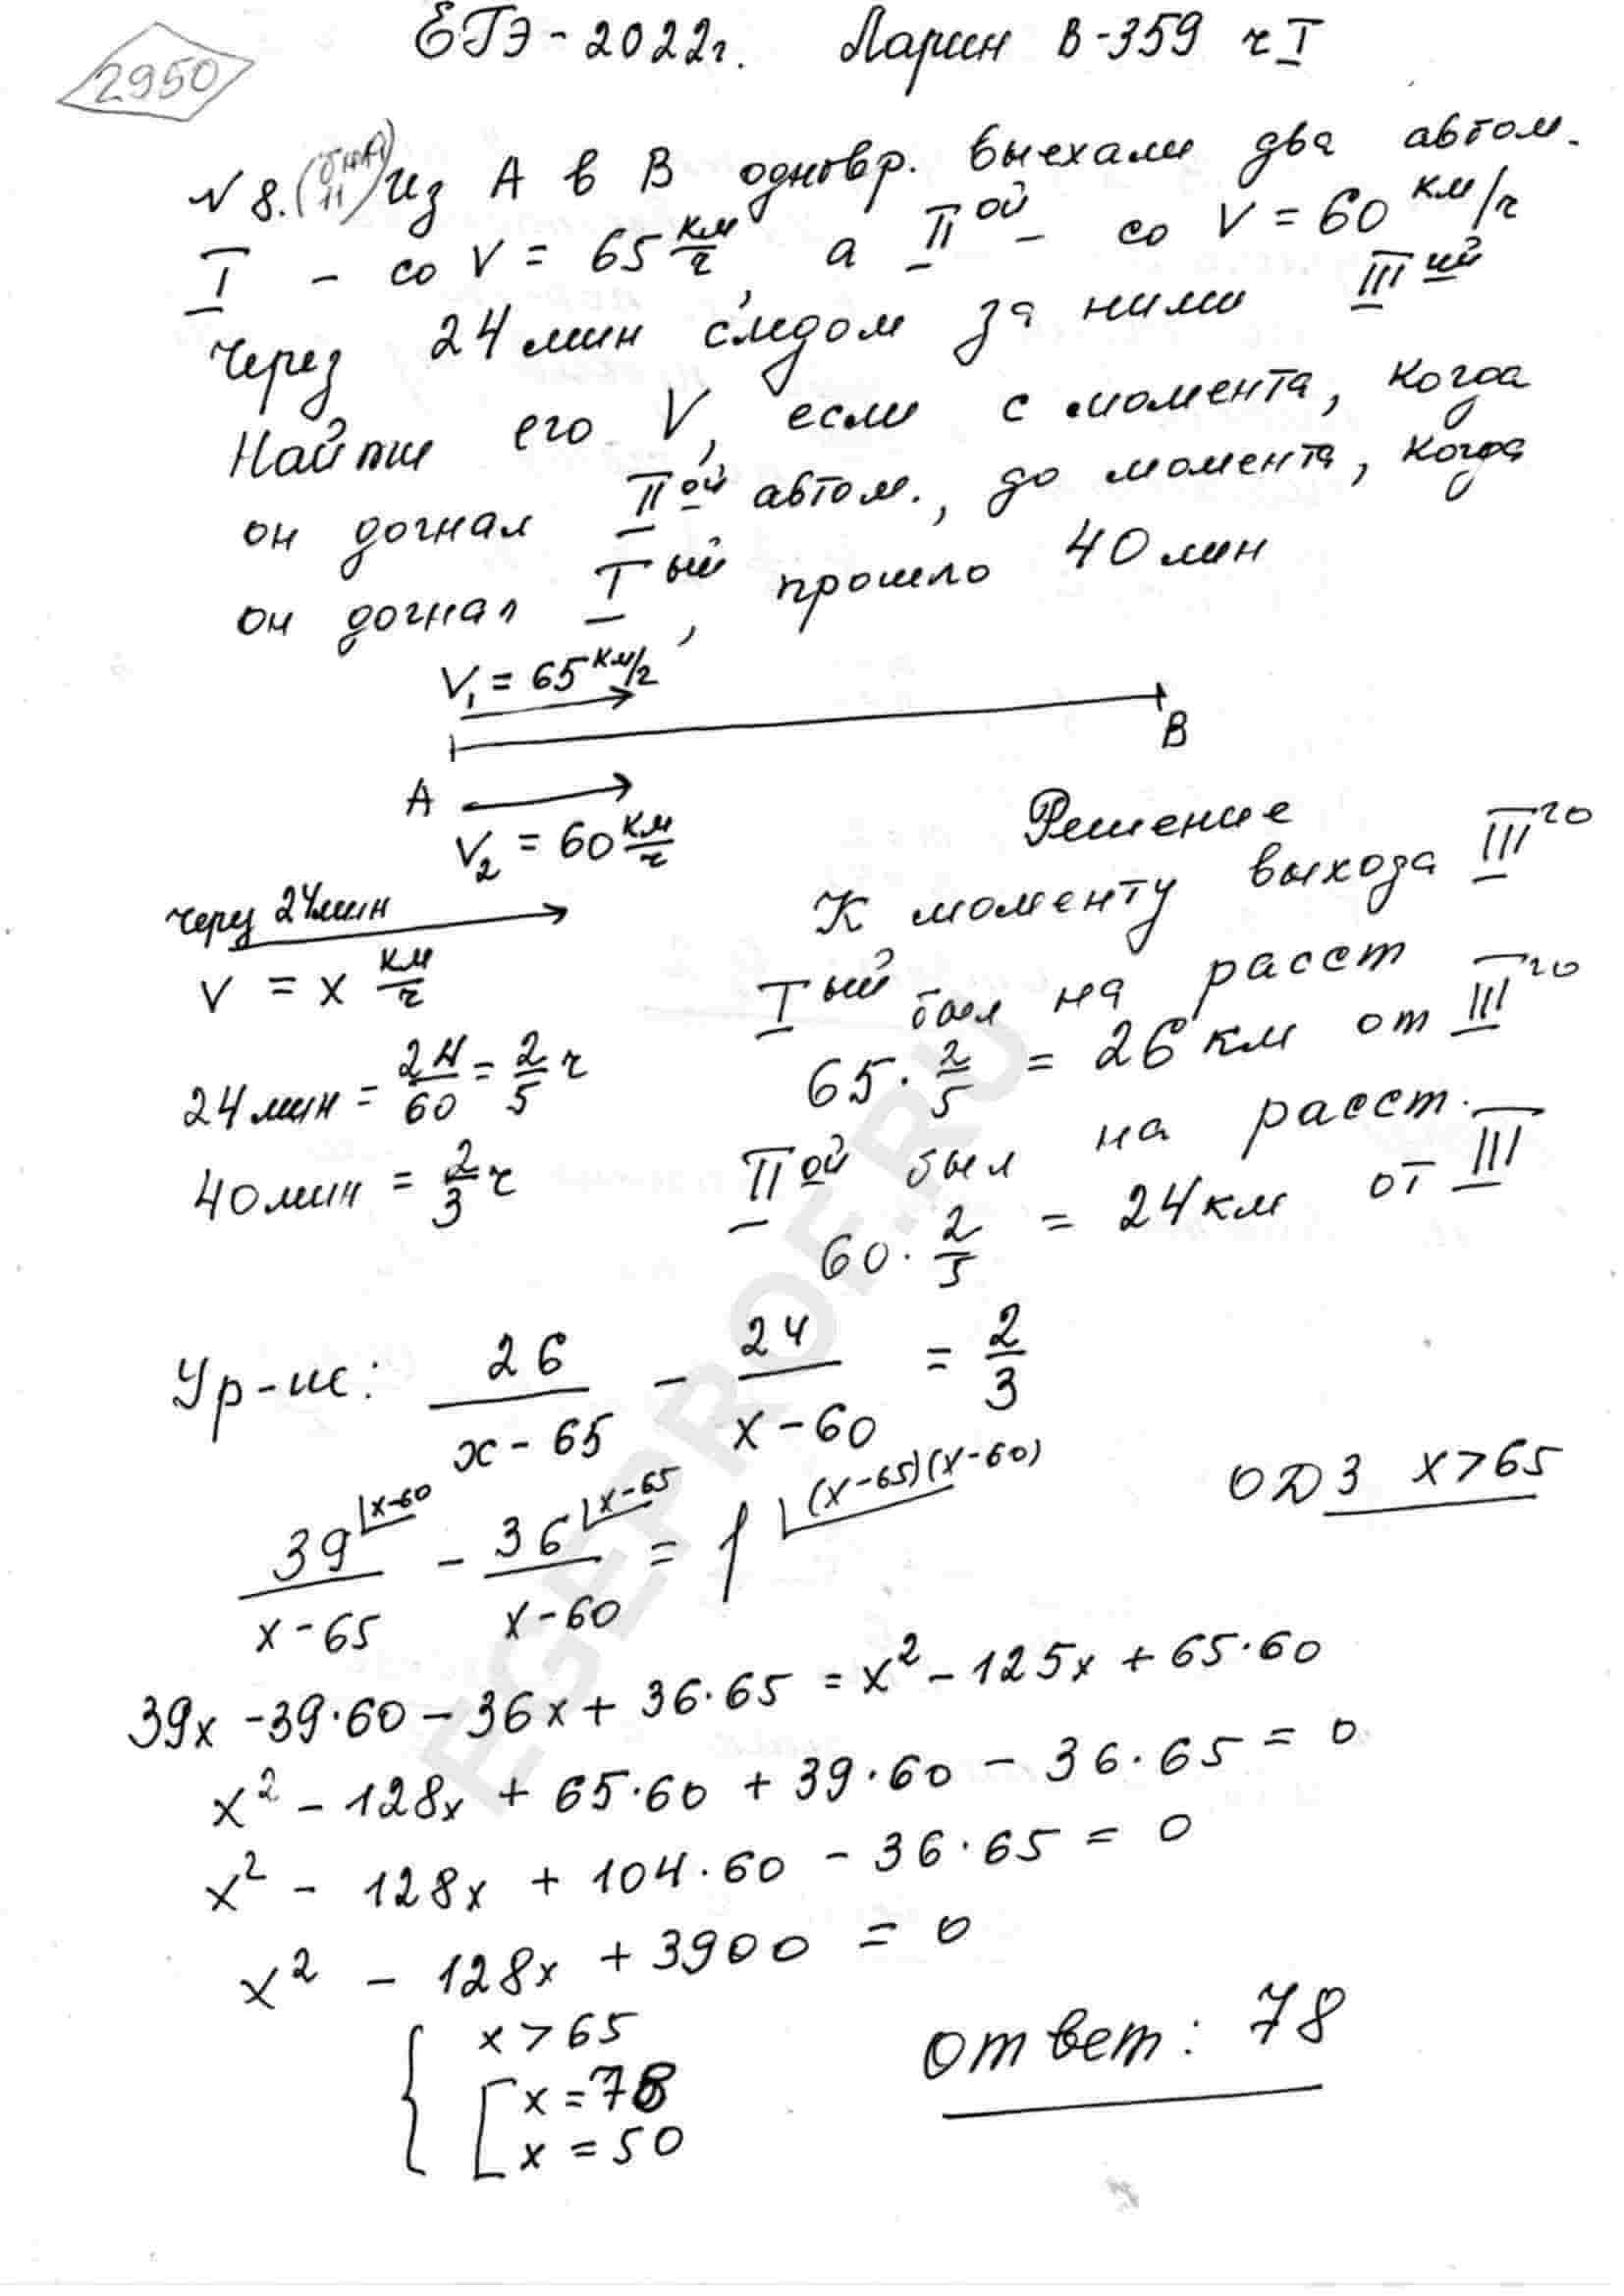 2950
ЕГЭ-2022г. Ларин В-359 ч I
№8. (11) Из А в В одновр. выехали два автом.
I - со V = 65 км/ч, а II ой - со V = 60 км/ч
Через 24 мин следом за ними III ий
Найти его V, если с момента, когда
он догнал II ой автом., до момента, когда
он догнал I ый, прошло 40 мин
V₁ = 65 км/ч
А В
V₂ = 60 км/ч
Решение
через 24 мин
V = x км/ч
24 мин = 24/60 = 2/5 ч
40 мин = 2/3 ч
К моменту выхода III го
I ый был на расст
65 · 2/5 = 26 км от III го
II ой был на расст.
60 · 2/5 = 24 км от III
Ур-ие: 26/(x-65) - 24/(x-60) = 2/3
ОДЗ x>65
39/(x-65) |x-60 - 36/(x-60) |x-65 = 1 |(x-65)(x-60)
39x - 39·60 - 36x + 36·65 = x² - 125x + 65·60
x² - 128x + 65·60 + 39·60 - 36·65 = 0
x² - 128x + 104·60 - 36·65 = 0
x² - 128x + 3900 = 0
{ x > 65
[ x = 78
x = 50
Ответ: 78
EGEPROF.RU